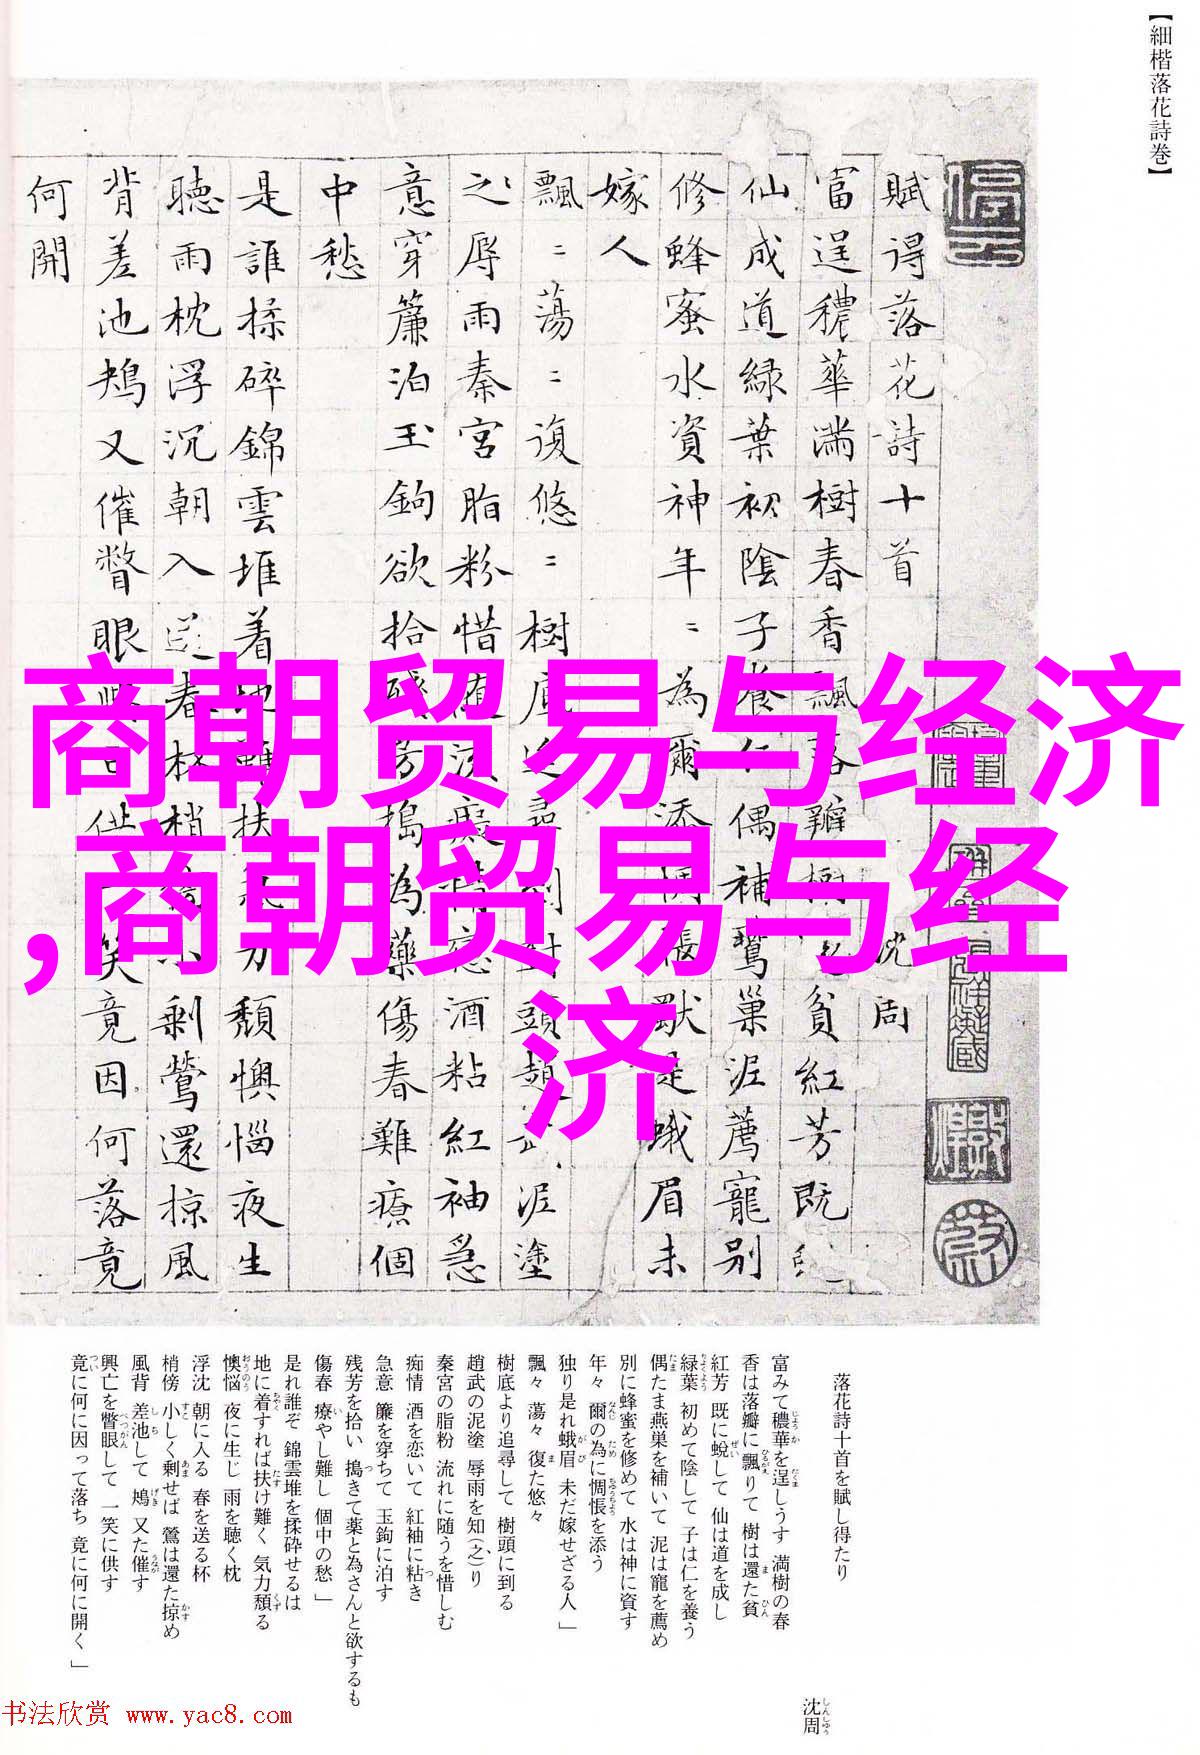 【細楷落花詩巻】
賦得落花詩十首 沈周
富逞穠華滿樹春香飄落瓣樹還貧紅芳既蛻
仙成道綠葉初陰子養仁偶補鷰巢泥薦寵別
修蜂蜜水資神年〻為爾添惆悵獨是蛾眉未
嫁人
飄〻蕩〻復悠〻樹底追尋到樹頭趙武泥塗
之辱雨秦宮脂粉惜隨流癡情戀酒粘紅袖急
意穿簾泊玉鉤欲拾殘芳搗為藥傷春難療個
中愁
是誰揉碎錦雲堆着地難扶氣力頹懊惱夜生
聽雨枕浮沉朝入送春杯梢傍小剩鶯還掠風
背差池鴂又催瞥眼興亡供一笑竟因何落竟
何開
商朝贸易与经济
,商朝贸易与经
济
落花詩十首を賦し得たり
沈周
しんしゅう
富みて穠華を逞しうす 満樹の春
香は落瓣に飄りて 樹は還た貧
紅芳 既に蛻して 仙は道を成し
緑葉 初めて陰して 子は仁を養う
偶たま燕巣を補いて 泥は寵を薦め
別に蜂蜜を修めて 水は神に資す
年々 爾の為に惆悵を添う
独り是れ蛾眉 未だ嫁せざる人」
飄々 蕩々 復た悠々
樹底より追尋して 樹頭に到る
趙武の泥塗 辱雨を知(之)り
秦宮の脂粉 流れに随うを惜しむ
痴情 酒を恋いて 紅袖に粘き
急意 簾を穿ちて 玉鉤に泊す
残芳を拾い 搗きて薬と為さんと欲するも
傷春 療やし難し 個中の愁」
是れ誰ぞ 錦雲堆を揉砕せるは
地に着すれば扶け難く 気力頽る
懊悩 夜に生じ 雨を聴く枕
浮沈 朝に入る 春を送る杯
梢傍 小しく剰せば 鶯は還た掠め
風背 差池して 鴂 又た催す
興亡を瞥眼して 一笑に供す
竟に何に因って落ち 竟に何に開く」
书法欣赏 www.yac8.com